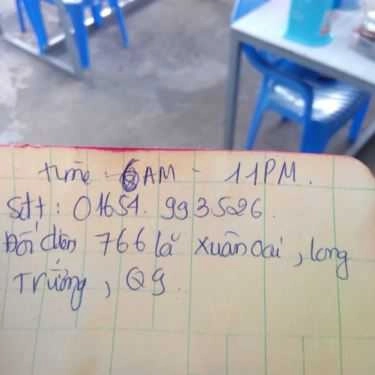 time : 6AM - 11PM.
Sđt : 01654. 993526.
Đối diện 766 lã Xuân Oai, Long
Trường, Q9.